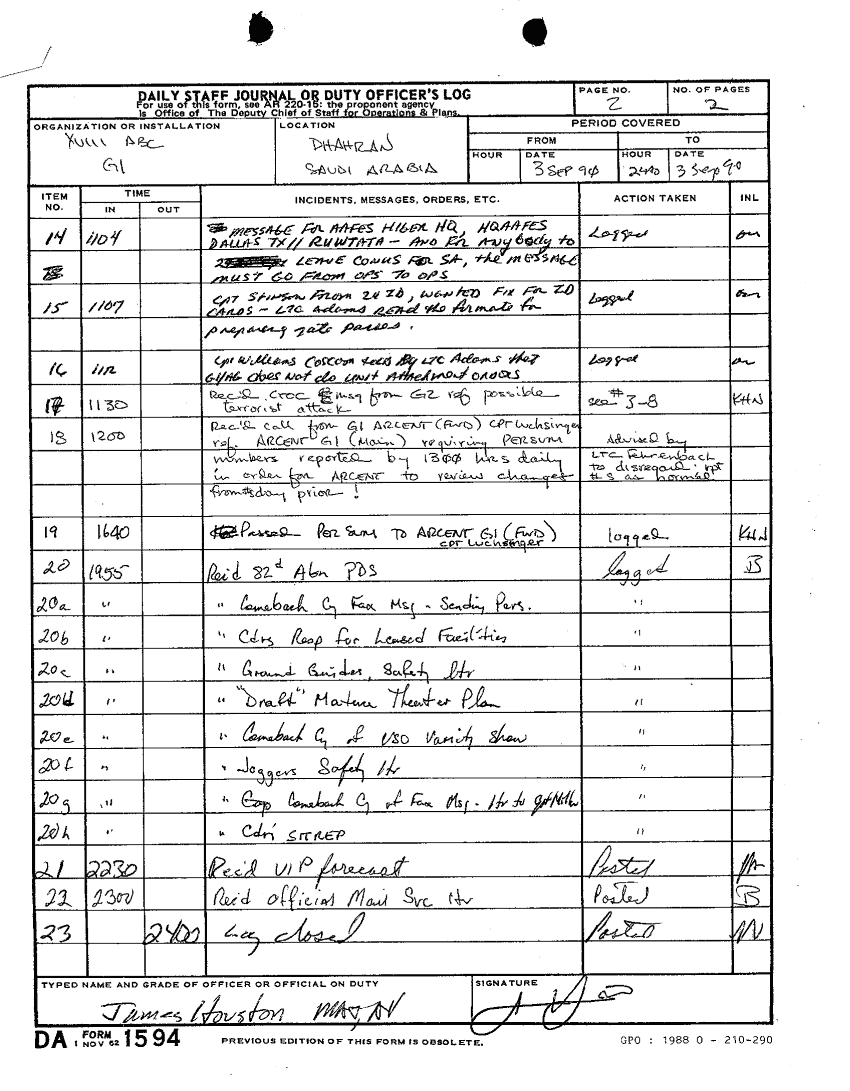 DAILY STAFF JOURNAL OR DUTY OFFICER'S LOG
For use of this form, see AR 220-15: the proponent agency
is Office of The Deputy Chief of Staff for Operations & Plans.
PAGE NO.
2
NO. OF PAGES
2
ORGANIZATION OR INSTALLATION
XVIII ABC
G1
LOCATION
DHAHRAN
SAUDI ARABIA
PERIOD COVERED
FROM
TO
HOUR
DATE
3 SEP 90
HOUR
2400
DATE
3 Sep 90
ITEM NO.
TIME
IN
OUT
INCIDENTS, MESSAGES, ORDERS, ETC.
ACTION TAKEN
INL
14 1104 MESSAGE FOR AAFES HIGER HQ, HQAAFES Logged
DALLAS TX// RUWTATA - AND For ANybody to
LEAVE CONUS FOR SA, the MESSAGE
MUST GO FROM OPS TO OPS
15 1107 CPT Stinson From 24 ID, WANTED Fix FOR ID Logged
CARDS - LTC Adams READ the formate for
preparing gate passes.
16 1112 Cpt Williams COSCOM told By LTC Adams that Logged
G1/AG does Not do unit Attachment orders
17 1130 Rec'd CTOC msg from G2 ref possible see #3-8 KHN
terrorist attack
18 1200 Rec'd call from G1 ARCENT (FWD) CPT Luchsinger
ref. ARCENT G1 (Main) requiring PERSUM Advised by
numbers reported by 1300 hrs daily LTC Fehrenbach
in order for ARCENT to review changes to disregard; rpt
from day prior! #s as normal.
19 1640 Passed PERSUM TO ARCENT G1 (FWD) logged KHN
CPT Luchsinger
20 1955 Rec'd 82d Abn PDS logged B
20a " " Comeback Cy Fax Msg - Sending Pers. "
20b " " Cdrs Resp for Leased Facilities "
20c " " Ground Guides, Safety ltr "
20d " " "Draft" Mature Theater Plan "
20e " " Comeback Cy of USO Variety Show "
20f " " Joggers Safety ltr "
20g " " Comeback Cy of Fax Msg - ltr to "
20h " " Cdr's SITREP "
21 2230 Rec'd VIP forecast Posted
22 2300 Rec'd Official Mail Svc ltr Posted B
23 2400 Log closed Posted
TYPED NAME AND GRADE OF OFFICER OR OFFICIAL ON DUTY
James Houston MAJ, AV
SIGNATURE
DA FORM 1594
1 NOV 62
PREVIOUS EDITION OF THIS FORM IS OBSOLETE.
GPO : 1988 O - 210-290